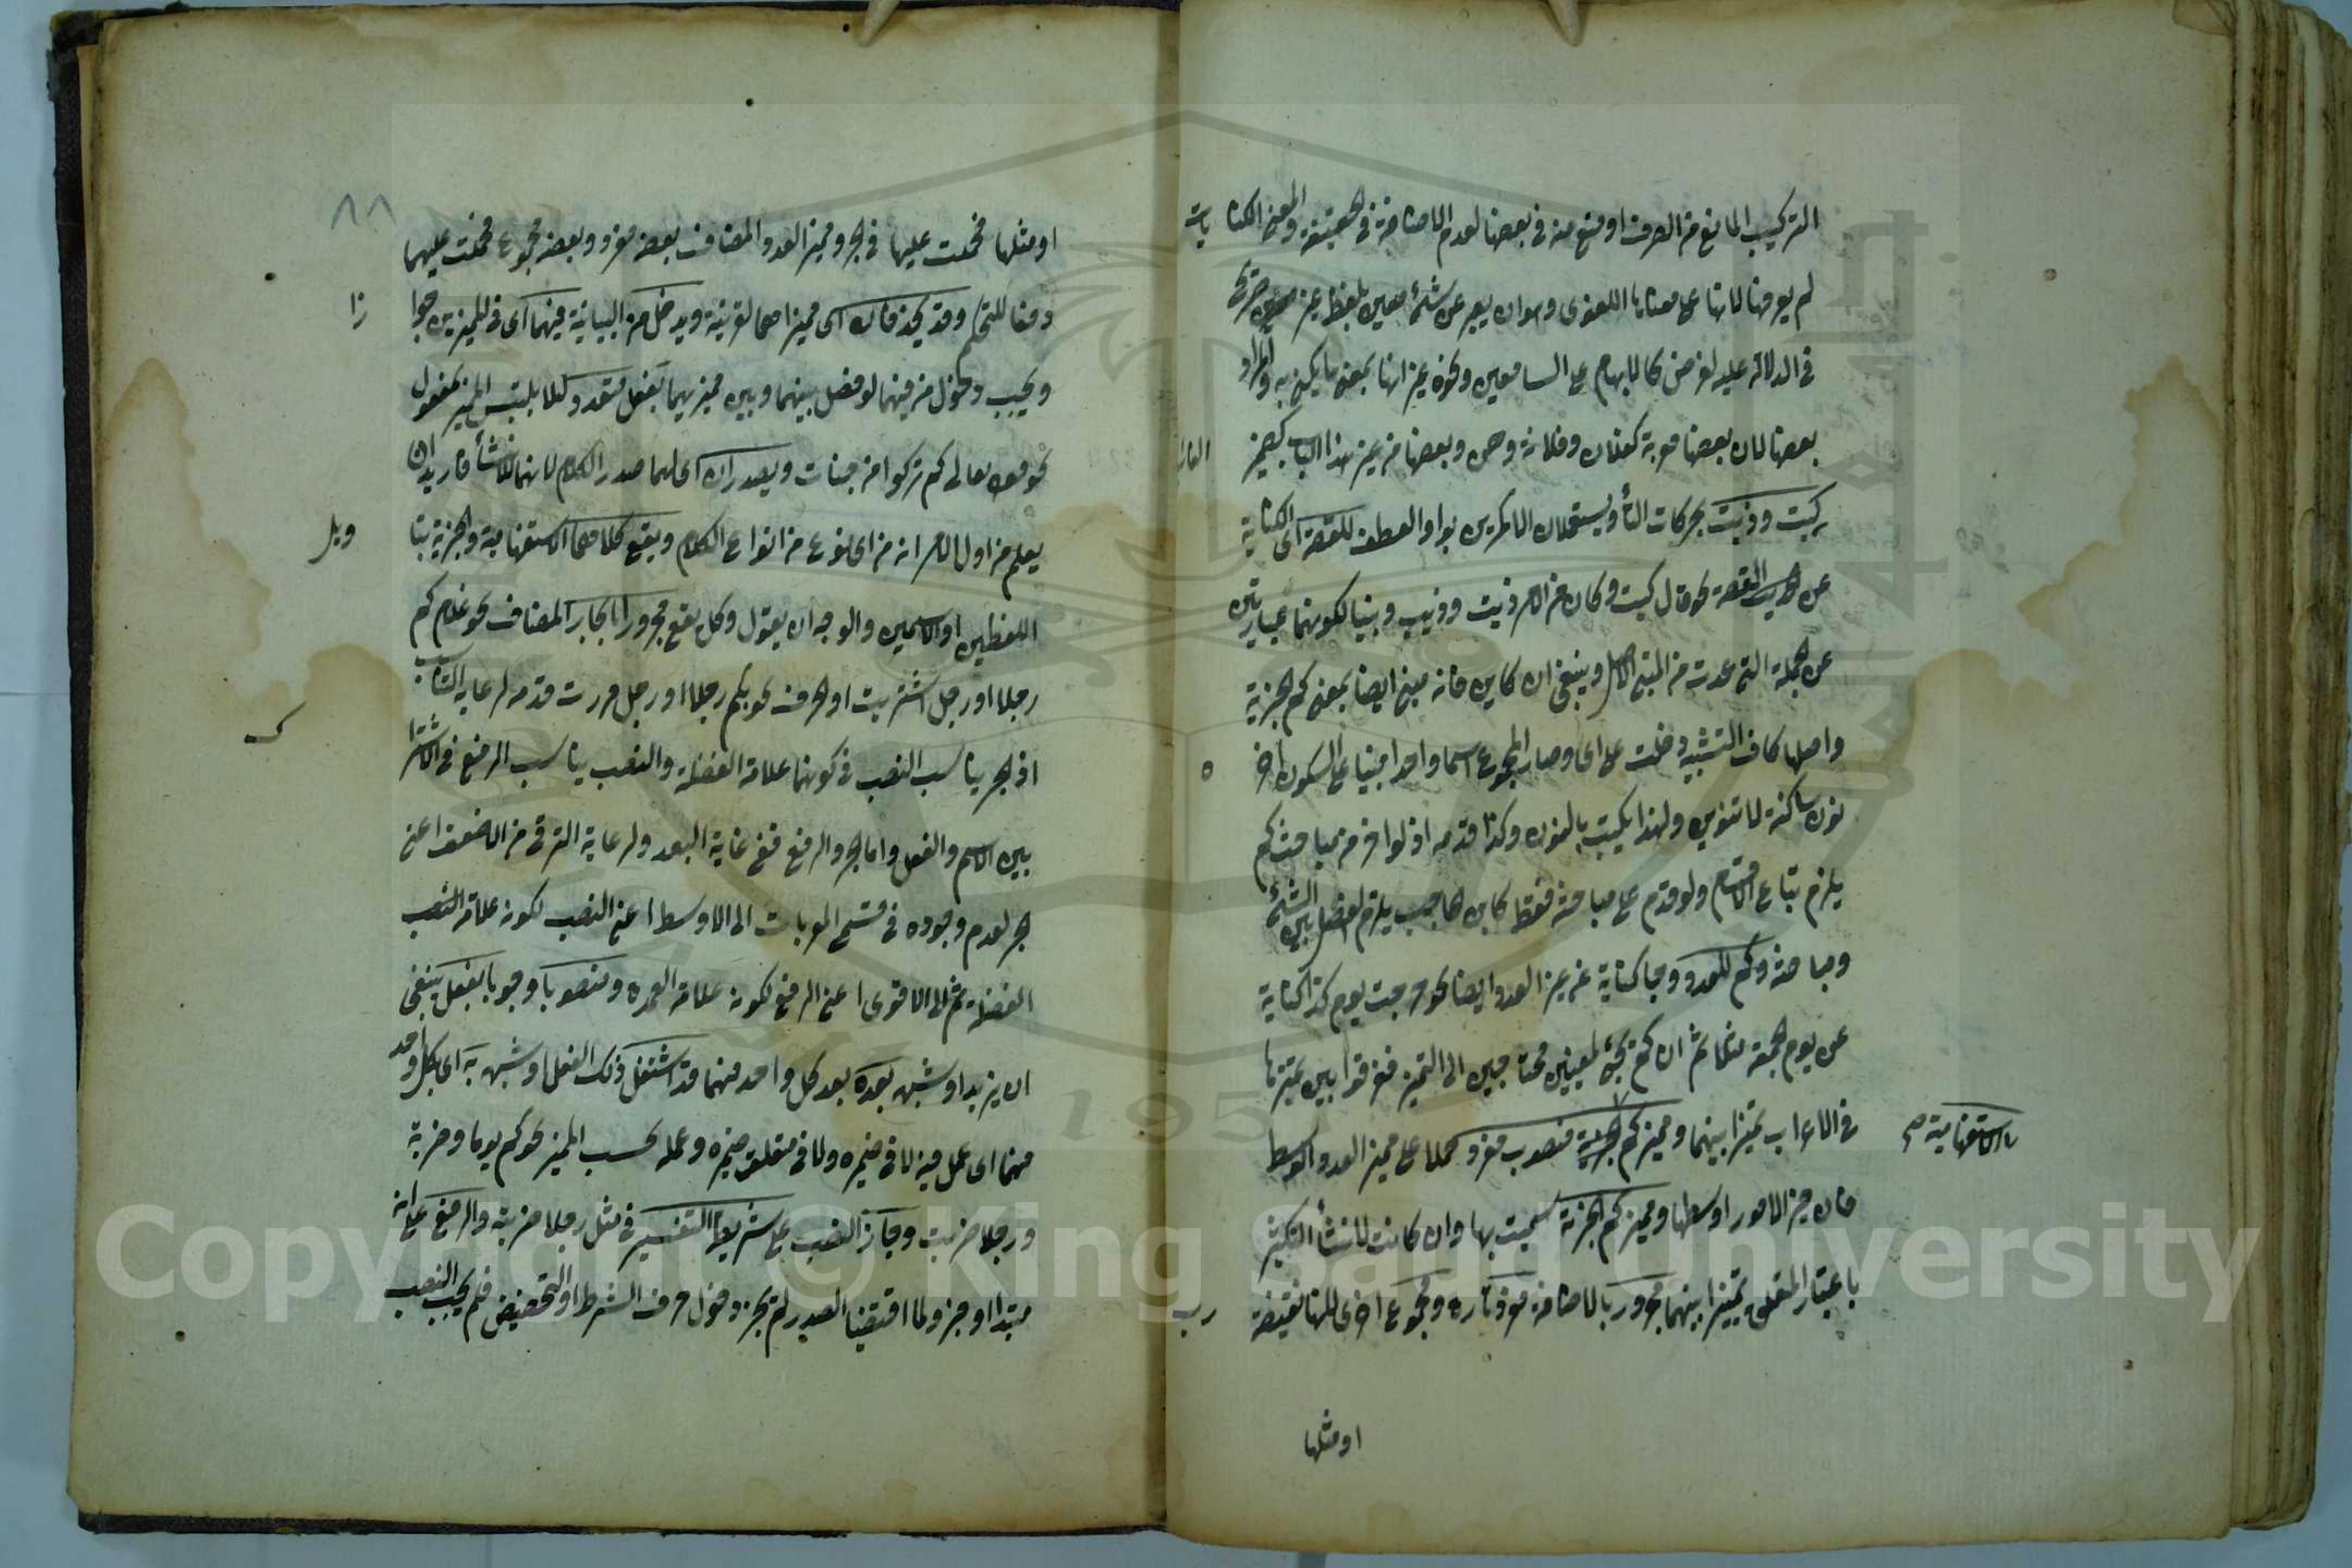 التركيب المانع من الصرف او منع منه في بعضها لعدم الاضافة في الحقيقة والمعنى الكنايات
لم يعرفها لانها على معناها اللغوى وهو ان يعبر عن شئ معين بلفظ غير صريح
في الدلالة عليه لغرض كالابهام على السامعين ونحوه غير انها بمعنى ما يكنى به والمراد
بعضها لان بعضها معربة كفلان وفلانة وهن وبعضها من غير هذا الباب كضمير الغائب
كيت وذيت بحركات التاء ويستعملان مكررين بواو العطف للقصة اى الكناية
عن القصة نحو قال كيت وكيت وكان من الامر ذيت وذيت وبنيا لكونهما عبارتين
عن الجملة التى عدت من المبنى الاصل وينبغى ان كاين فانه مبنى ايضا بمعنى كم الخبرية
واصلها كاف التشبيه دخلت على اى وصار المجموع اسما واحدا مبنيا على السكون آخره
نون ساكنة لا تنوين ولهذا يكتب بالنون وكذا قدمه اذ لو اخر من مباحث كم
يلزم الاقسام ولو قدم على مباحثه فقط كابن حاجب يلزم الفصل بين الشئ
ومباحثه وكم للعدد وجا كناية عن غير العدد ايضا نحو خرجت يوم كذا كناية
عن يوم الجمعة مثلا ثم ان كم تجئ لمعنيين محتاجين الى التمييز ففرقوا بين مميزها
فى الاعراب تمييزا بينهما ومميز كم منصوب مفرد حملا على مميز العدد الوسط
الاستفهامية صح
فان خير الامور اوسطها ومميز كم الخبرية سميت بها وان كانت لانشاء التكثير
باعتبار تمييزا بينهما مجرور بالاضافة مفرد تارة ومجموع اخرى لانها نقيضة رب
او مثلها
٨٨
او مثلها فحملت عليها فى الجر ومميز العدد المضاف بعضه مفرد وبعضه مجموع فحملت عليهما
دفعا للتحكم وقد يحذفان اى مميزاهما لقرينة ويدخل من البيانية فيهما اى فى المميزين جوازا
ويجب دخول من فيهما لو فصل بينهما وبين مميزيهما بفعل متعد لئلا يلتبس المميز بمفعول
نحو قوله تعالى كم تركوا من جنات ويصدران اى لهما صدر الكلام لانهما للانشاء فاريد ان
يعلم من اول الامر انه من اى نوع من انواع الكلام ويقع كلاهما الاستفهامية والخبرية بتاويل
اللفظين او الاسمين والوجه ان يقول وكل يقع مجرورا بالجار المضاف نحو غلام كم
رجلا او رجل اشتريت او الحرف نحو بكم رجلا او رجل مررت قدمه لرعاية التناسب
اذ الجر يناسب النصب فى كونهما علامة الفضلة والنصب يناسب الرفع فى الاشتراك
بين الاسم والفعل واما الجر والرفع ففى غاية البعد ولرعاية الترقى من الاضعف اعنى
الجر لعدم وجوده فى قسمى المعربات الى الاوسط اعنى النصب لكونه علامة النصب
الفضلة ثم الى الاقوى اعنى الرفع لكونه علامة العمدة ومنصوبا وجوبا بفعل ينبغى
ان يزيد او شبهه بعده بعد كل واحد منهما قد اشتغل ذلك الفعل او شبهه به اى بكل واحد
منهما اى عمل فيه لا فى ضميره ولا فى متعلق ضميره وعمله بحسب المميز نحو كم يوما وضربة
ورجلا ضربت وجاز النصب على شريطة التفسير فى مثل رجلا ضربته والرفع على انه
مبتدا او خبر ولما اقتضيا الصدر لم يجز دخول حرف الشرط او التحضيض فلم يجب النصب